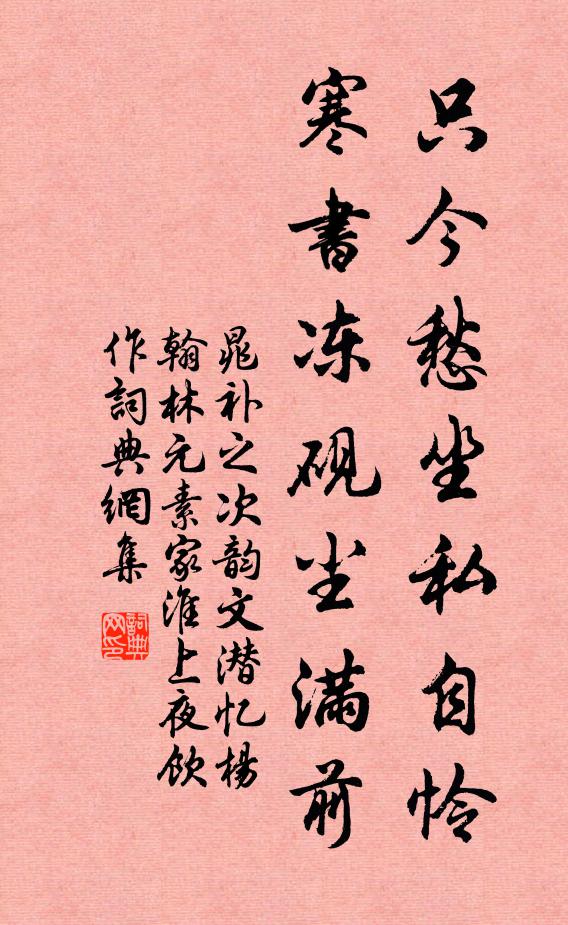 只今愁坐私自怜
寒书冻砚尘满前
晁补之次韵文潜忆杨
翰林元素家淮上夜饮
作词典网集
词典
网印